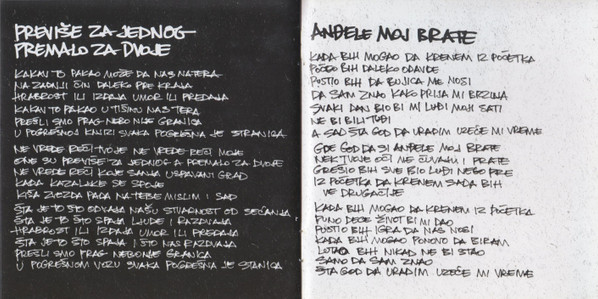 PREVIŠE ZA JEDNOG
PREMALO ZA DVOJE
KAKAV TO PAKAO MOŽE DA NAS NATERA
NA ZADNJI ČIN DALEKO PRE KRAJA
HRABROST ILI IZDAJA UMOR ILI PREDAJA
KAKAV TO PAKAO U TIŠINU NAS TERA
PREŠLI SMO PRAG NEBO NIJE GRANICA
U POGREŠNOJ KNJIZI SVAKA POGREŠNA JE STRANICA
NE VREDE REČI TVOJE NE VREDE REČI MOJE
ONE SU PREVIŠE ZA JEDNOG A PREMALO ZA DVOJE
NE VREDE REČI KOJE SANJA USPAVANI GRAD
KADA KAZALJKE SE SPOJE
KIŠA ZVEZDA PADA NA TEBE MISLIM I SAD
ŠTA JE TO ŠTO ODVAJA NAŠU STVARNOST OD SEĆANJA
ŠTA JE TO ŠTO SPAJA LJUDE I RAZDVAJA
HRABROST ILI IZDAJA UMOR ILI PREDAJA
ŠTA JE TO ŠTO SPAJA I ŠTO NAS RAZDVAJA
PREŠLI SMO PRAG NEBO NIJE GRANICA
U POGREŠNOM VOZU SVAKA POGREŠNA JE STANICA
ANĐELE MOJ BRATE
KADA BIH MOGAO DA KRENEM IZ POČETKA
POŠO BIH DALEKO ODAVDE
PUSTIO BIH DA BUJICA ME NOSI
DA SAM ZNAO KAKO PRIJA MI BRZINA
SVAKI DAN BIO BI MI LUĐI MOJI SATI
NE BI BILI TUĐI
A SAD ŠTA GOD DA URADIM UZEĆE MI VREME
GDE GOD DA SI ANĐELE MOJ BRATE
NEK TVOJE OČI ME ČUVAJU I PRATE
GREŠIO BIH SVE BIO LUĐI NEGO PRE
IZ POČETKA DA KRENEM SADA BIH
VE DRUGAČIJE
KADA BIH MOGAO DA KRENEM IZ POČETKA
PUNO DECE ŽIVOT BI MI DAO
PUSTIO BIH IGRA DA NAS NOSI
KADA BIH MOGAO PONOVO DA BIRAM
LUTAO BIH NIKAD NE BI STAO
SAMO DA SAM ZNAO
ŠTA GOD DA URADIM UZEĆE MI VREME